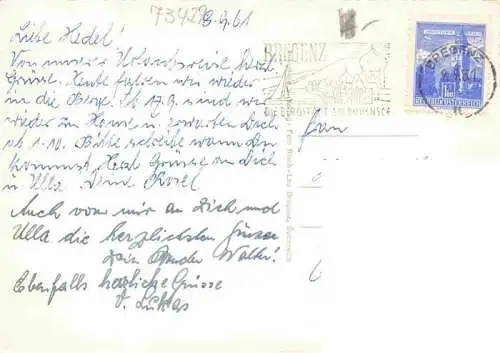 73429
13.9.61
Liebe Hedel!
Von unserer Urlaubsreise herzl.
Grüsse. Heute fahren wir wieder
in die Berge. Ab 17.9. sind wir
wieder zu Hause u. erwarten Dich
ab 1.10. Bitte schreibe wann Du
kommst. Herzl. Grüsse an Dich
u. Ulla. Deine Rosel
Auch von mir an Dich und
Ulla die herzlichsten Grüsse
Dein Bruder Walter!
Ebenfalls herzliche Grüsse
V. Lukas
BREGENZ
DIE AM BODENSEE
BREGENZ
REPUBLIK ÖSTERREICH
Frau